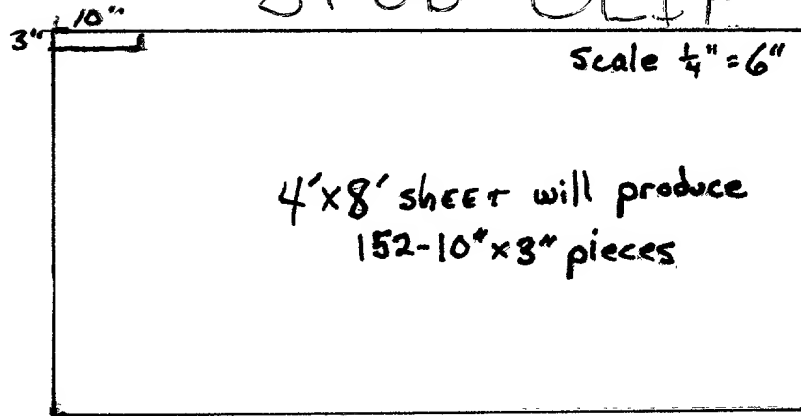 10"
3"
Scale ¼" = 6"
4'x8' sheet will produce
152-10"x3" pieces